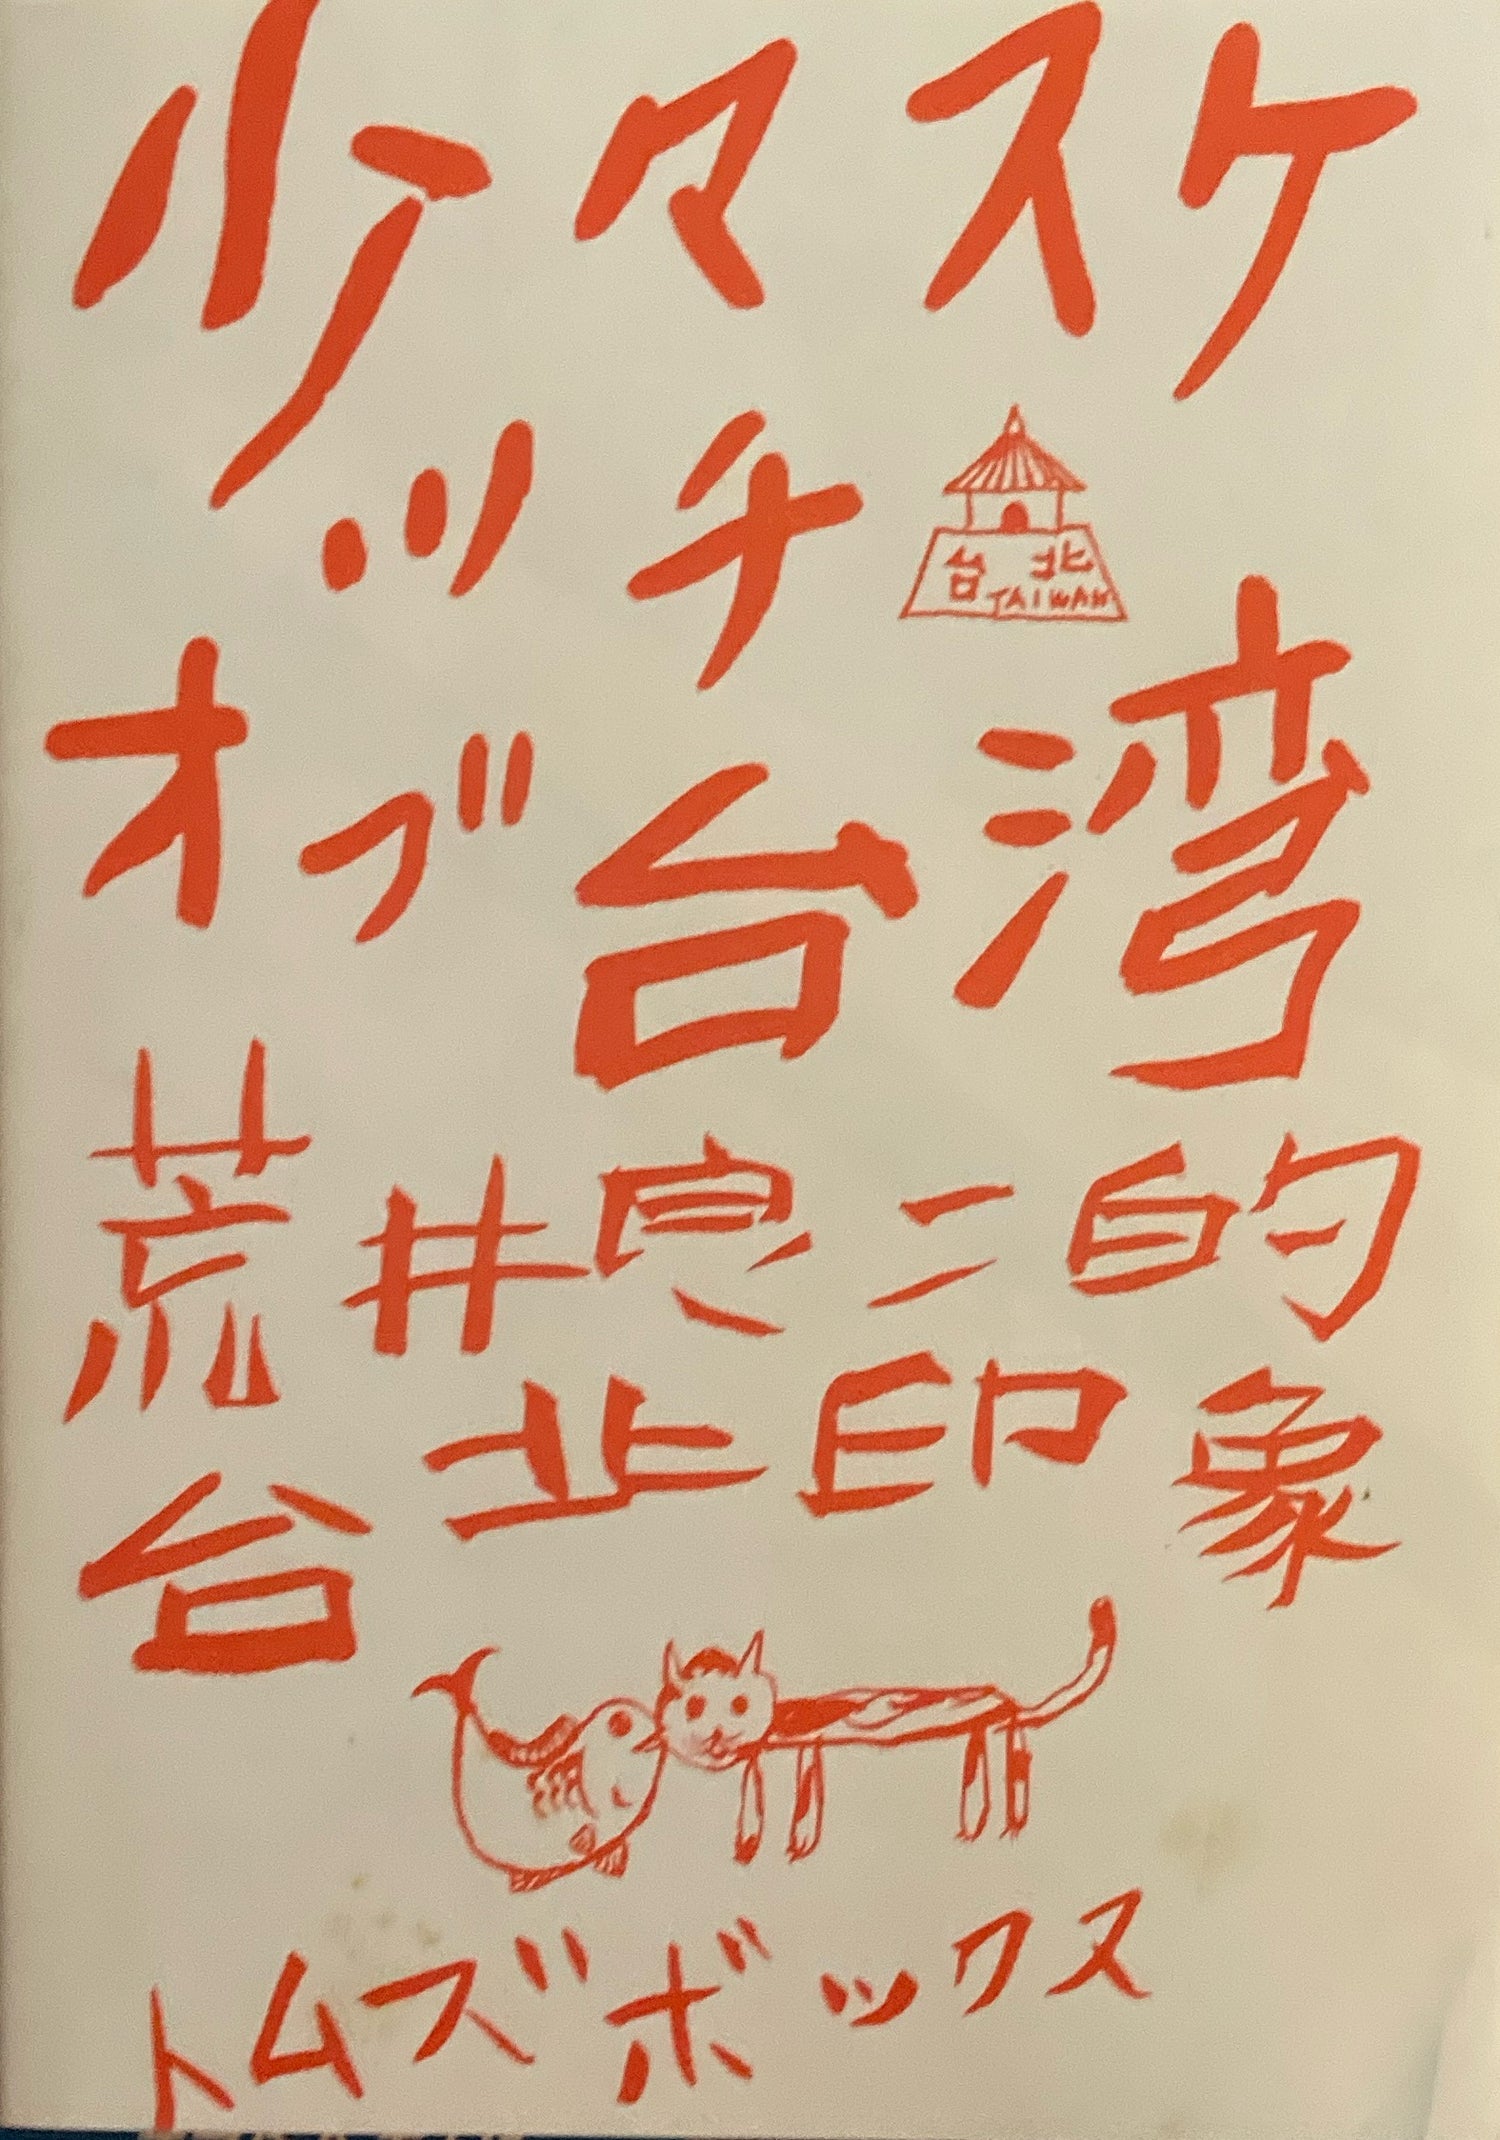 少々スケ
ッチ
台北
TAIWAN
オブ台湾
荒井良二的
台北印象
トムズボックス